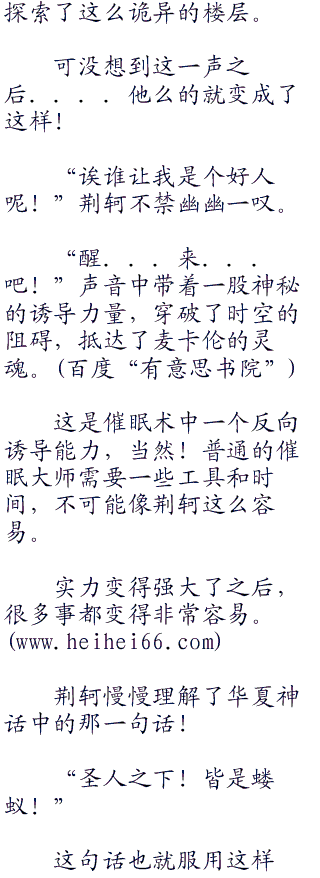 探索了这么诡异的楼层。
可没想到这一声之
后．．．．他么的就变成了
这样！
“诶谁让我是个好人
呢！”荆轲不禁幽幽一叹。
“醒．．．来．．．
吧！”声音中带着一股神秘
的诱导力量，穿破了时空的
阻碍，抵达了麦卡伦的灵
魂。(百度“有意思书院”)
这是催眠术中一个反向
诱导能力，当然！普通的催
眠大师需要一些工具和时
间，不可能像荆轲这么容
易。
实力变得强大了之后，
很多事都变得非常容易。
(www.heihei66.com)
荆轲慢慢理解了华夏神
话中的那一句话！
“圣人之下！皆是蝼
蚁！”
这句话也就服用这样